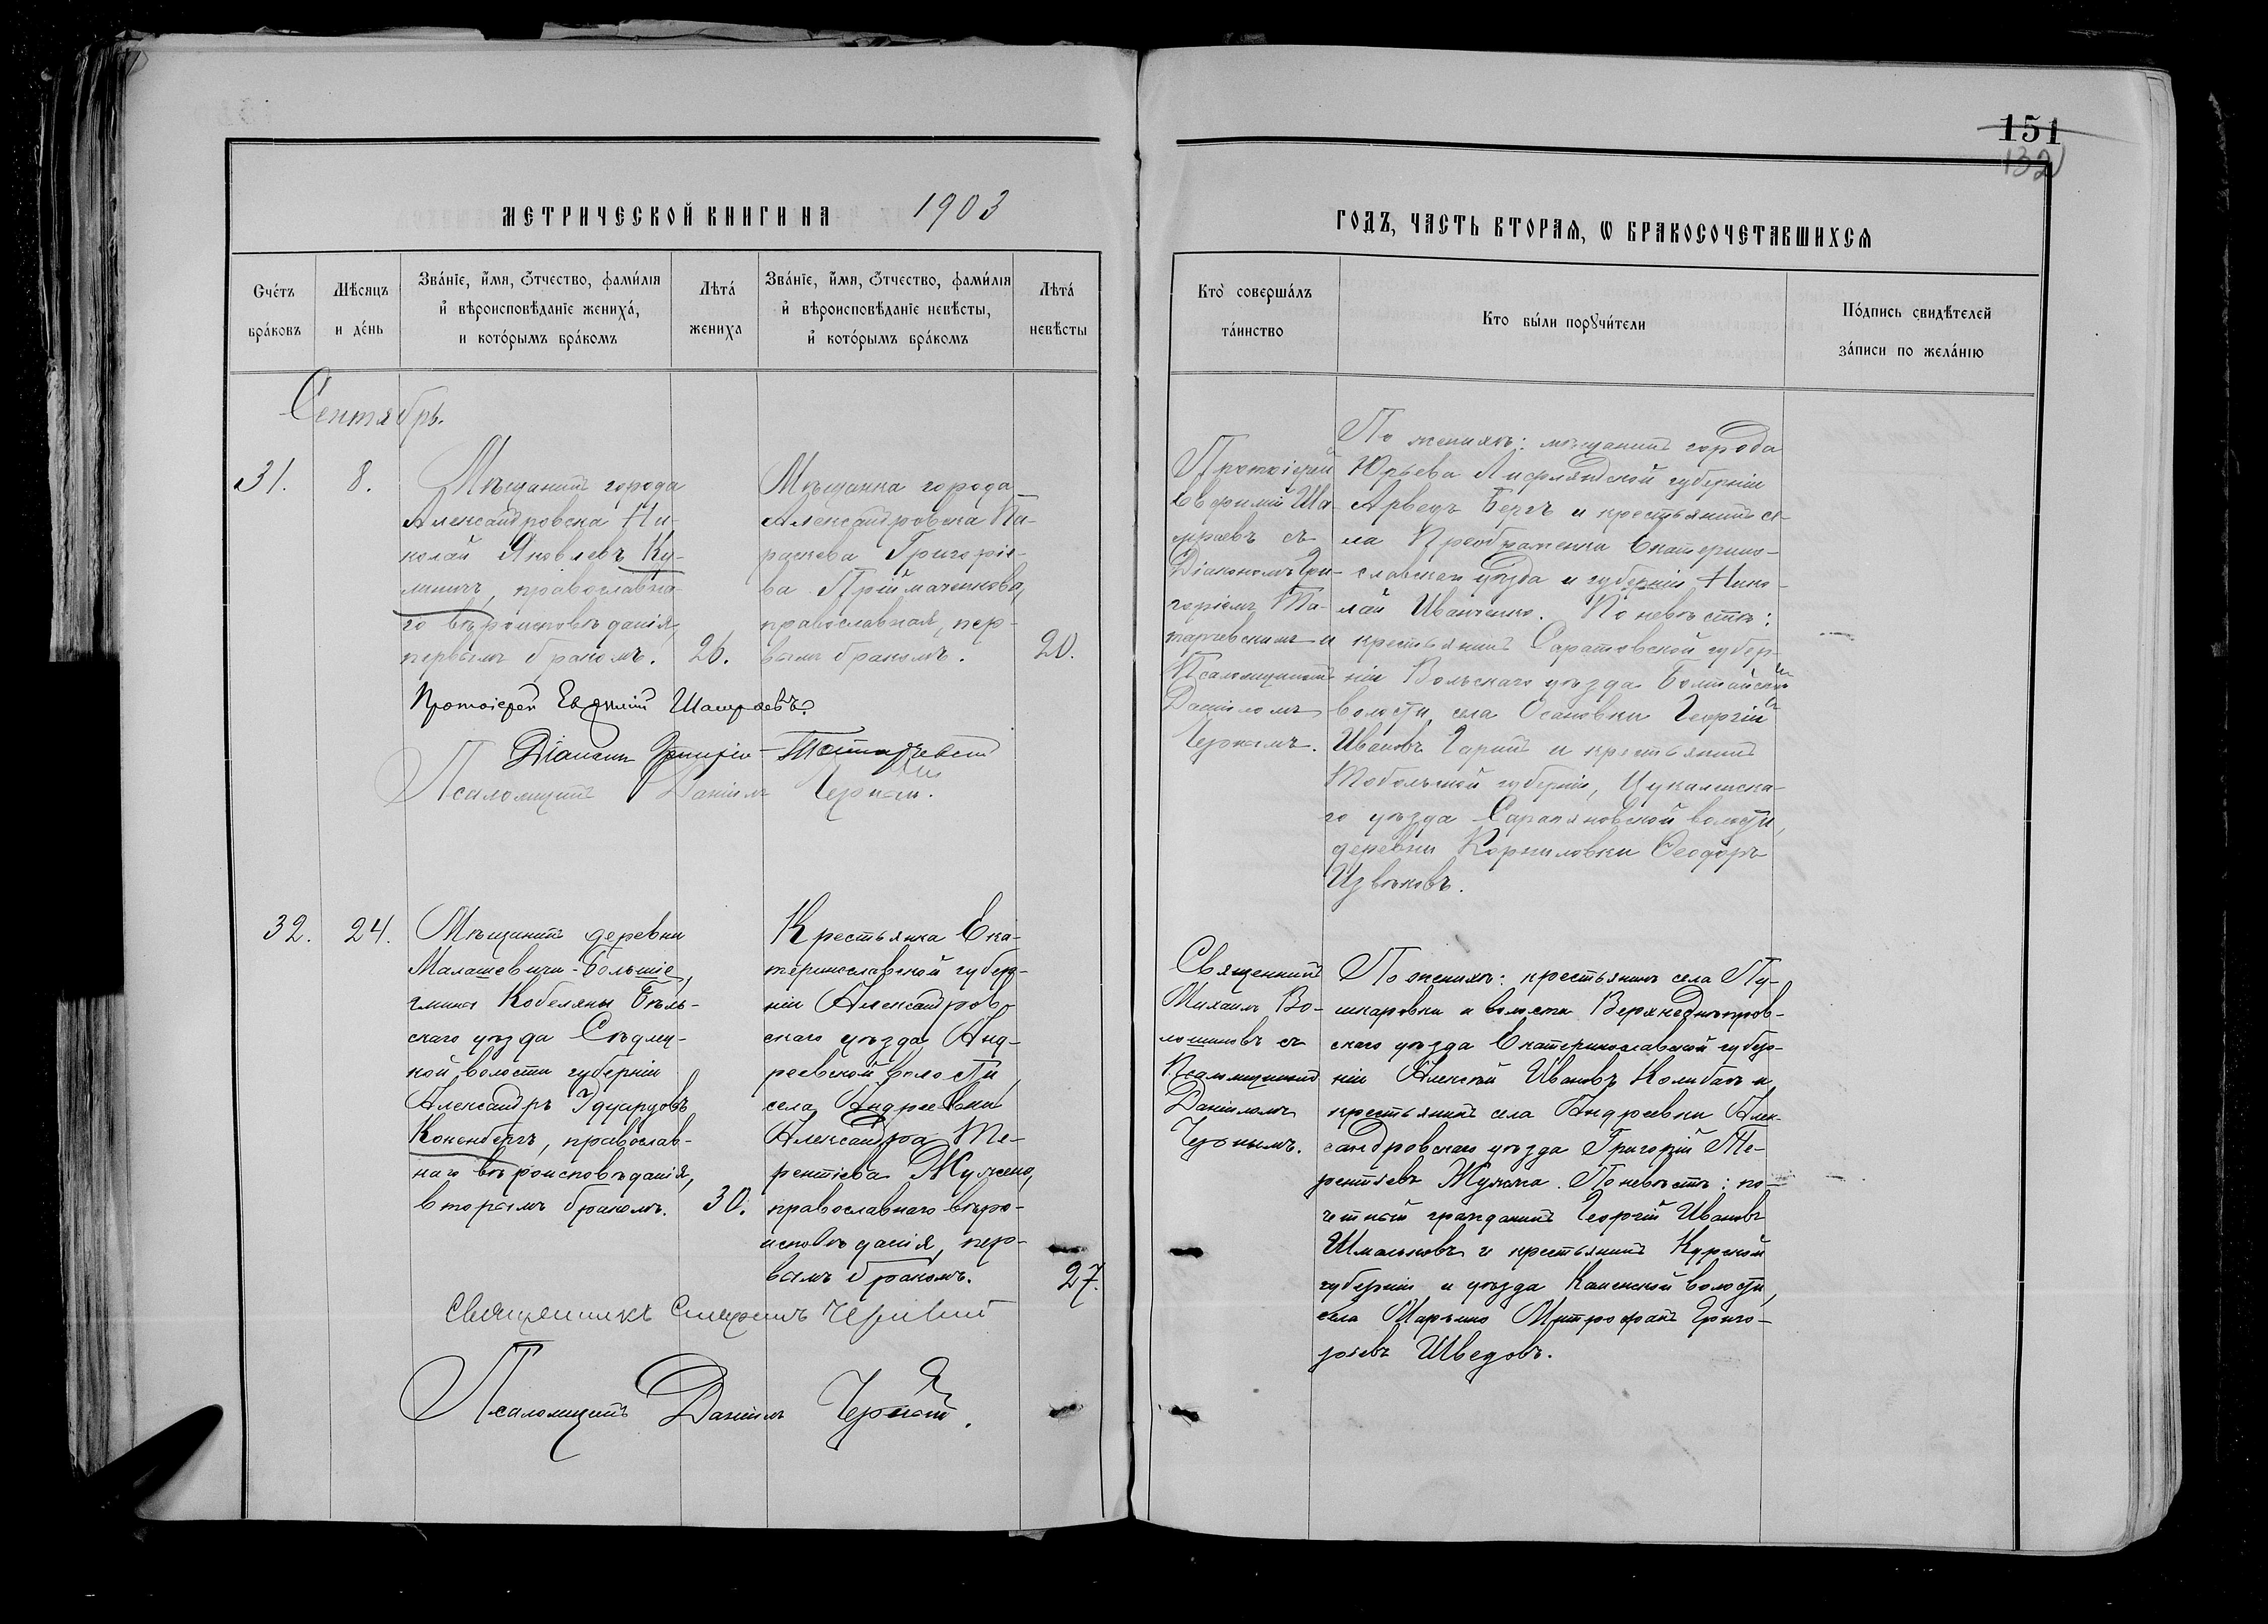 151
132
МЕТРИЧЕСКОЙ КНИГИ НА 1903
ГОДЪ, ЧАСТЬ ВТОРАѦ, Ѡ БРАКОСОЧЕТАВШИХСѦ
Счéтъ брáковъ
Мѣсяцъ и дéнь
Звáнїе, и҆́мя, ѻ҆́тчество, фамѝлїя
и҆ вѣроисповѣ́данїе женихá,
и котóрымъ брáкомъ
Лѣтá жениха
Звáнїе, и҆́мя, ѻ҆́тчество, фамѝлїя
и҆ вѣроисповѣ́данїе невѣ́сты,
и҆ котóрымъ брáкомъ
Лѣтá невѣ́сты
Ктò совершáлъ
тáинство
Кто бы́ли порꙋчи́тели
Пóдпись свидѣ́телей
зáписи по желáнїю
Сентябрь.
31.
8.
Мѣщанинъ города
Александровска Ни-
колай Яковлевъ Ку-
линичъ, православна-
го вѣроисповѣданія,
первымъ бракомъ.
26.
Мѣщанка города
Александровска Па-
раскева Григоріе-
ва Пріймаченкова,
православная, пер-
вымъ бракомъ.
20.
Протоіерей Евфимій
Діакономъ Гри-
горіемъ
Псаломщикомъ
Даніиломъ
Чернымъ.
По женихѣ: мѣщанинъ города
Юрьева Лифляндской губерніи
Арведъ Бергъ и крестьянинъ се-
ла Преображенки Екатерино-
славскаго уѣзда и губерніи Нико-
лай Иванченко. По невѣстѣ:
крестьянинъ Саратовской губер-
ніи Вольскаго уѣзда
волости, села Осановки Георгій
Ивановъ Гаринъ и крестьянинъ
Тобольской губерніи,
го уѣзда волости,
деревни Корниловки Ѳеодоръ
Извѣковъ.
Протоіерей Евфимій
Діаконъ Григорій
Псаломщикъ Даніилъ Черный.
32.
24.
Мѣщанинъ деревни
Малашевичи-Большіе,
гмины Кобеляны Бѣль-
скаго уѣзда Сѣдлец-
кой волости губерніи
Александръ Эдуардовъ
Коненбергъ, православ-
наго вѣроисповѣданія,
вторымъ бракомъ.
30.
Крестьянка Ека-
теринославской губер-
ніи Александров-
скаго уѣзда Анд-
реевской волости,
села Андреевки
Александра Те-
рентіева Мужена,
православнаго вѣро-
исповѣданія, пер-
вымъ бракомъ.
27.
Священникъ
Михаилъ Во-
лошиновъ съ
Псаломщикомъ
Даніиломъ
Чернымъ.
По женихѣ: крестьянинъ села Пу-
шкаровки и волости Верхнеднѣпров-
скаго уѣзда Екатеринославской губер-
ніи Алексѣй Ивановъ Колибабъ и
крестьянинъ села Андреевки Алек-
сандровскаго уѣзда Григорій Те-
рентіевъ Мужена. По невѣстѣ: по-
четный гражданинъ Георгій Ивановъ
Шмаьковъ и крестьянинъ Курской
губерніи и уѣзда Каменской волости,
села Марьино Митрофанъ Григо-
рьевъ Шведовъ.
Священникъ
Псаломщикъ Даніилъ Черный.